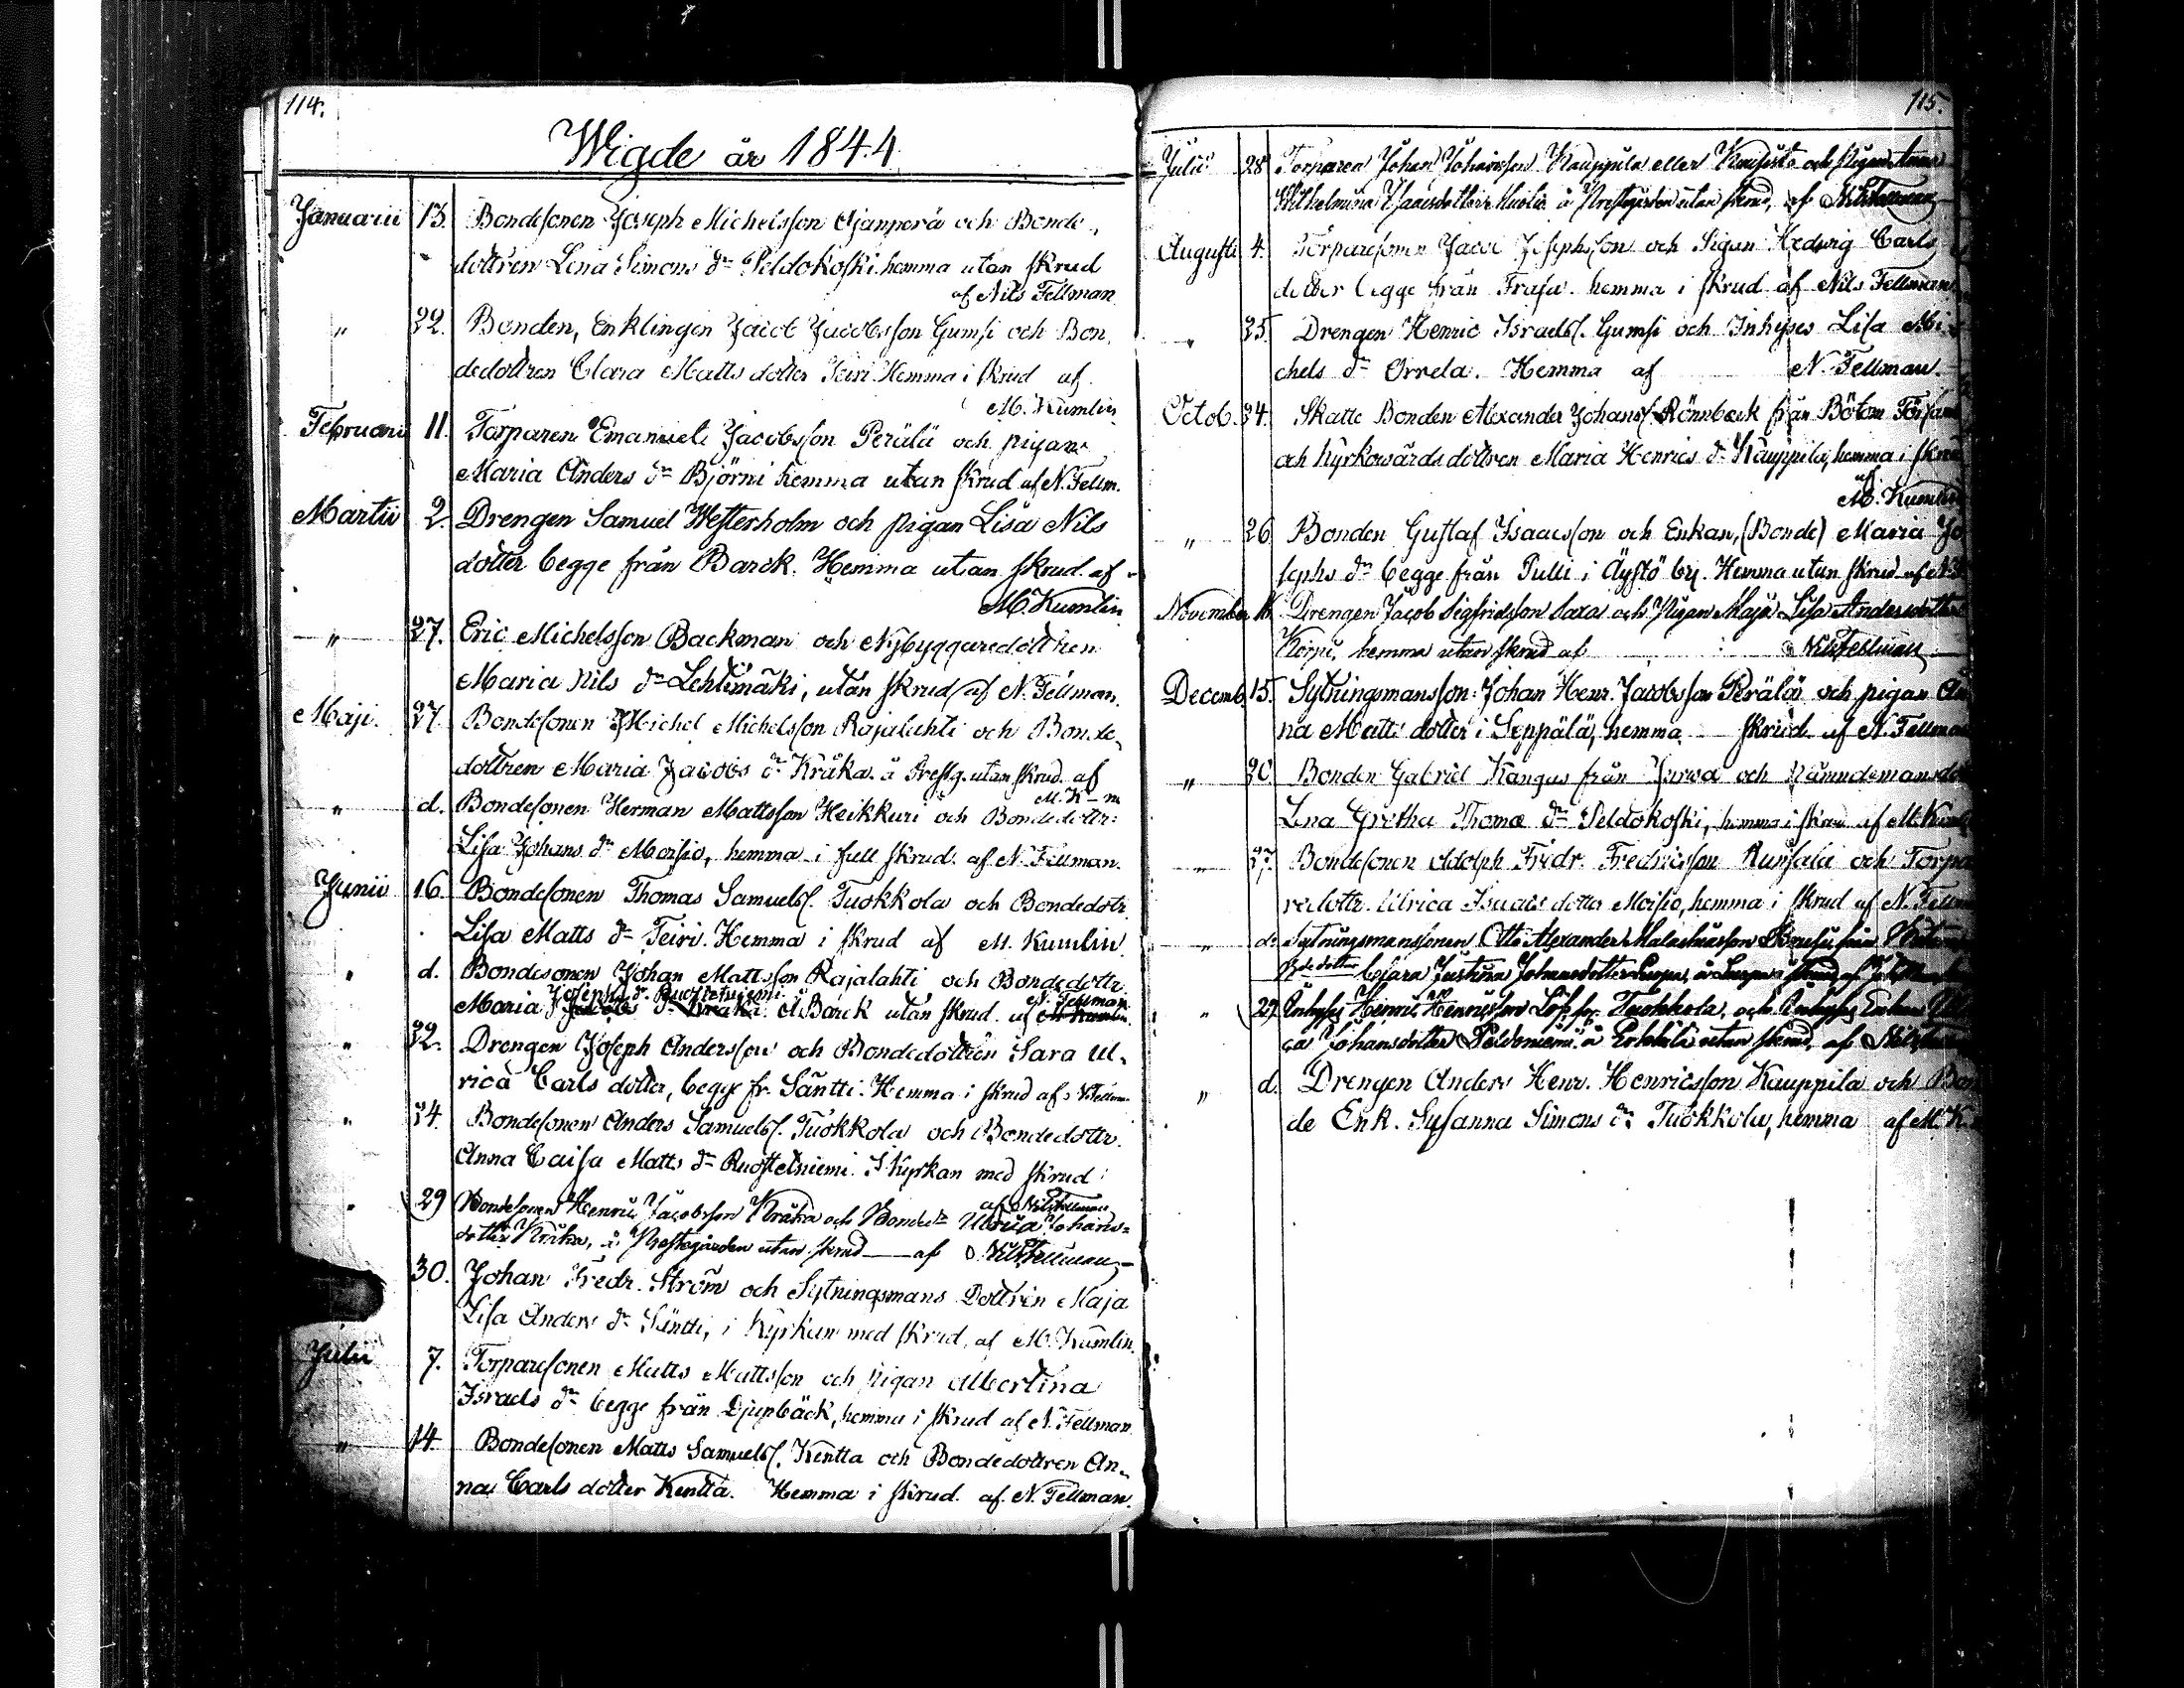 114.
Wigde år 1844
Januarii 13. Bondesonen Joseph Michelsson Ojanperä och Bonde,
dottren Lena Simons dr Peldokoski hemma utan skrud
af Nils Fellman
" 22. Bonden, Enklingen Jacob Jacobsson Gumsi och Bon,
dedottren Clara Matts dotter Teiri Hemma i skrud af
M. Kumlin
Februarii 11. Torparen Emanuel Jacobsson Perälä och pigan
Maria Anders dr Björni hemma utan skrud af N. Fellm.
Martii 2. Drengen Samuel Westerholm och pigan Lisa Nils
dotter begge från Barck. Hemma utan skrud af
M. Kumlin
" 27. Eric Michelsson Backman och Nybyggaredottren
Maria Nils dr Lehtimäki, utan skrud af N. Fellman.
Maji. 27. Bondesonen Michel Michelsson Rajalahti och Bonde,
dottren Maria Jacobs dr Kråka å Prestg. utan skrud af
M. K–n
" d. Bondesonen Herman Mattsson Heikkuri och Bondedottr:
Lisa Johans dr Moisio, hemma i full skrud af N. Fellman.
Junii 16. Bondesonen Thomas Samuelss. Tuokkola och Bondedotr.
Lisa Matts dr Teiri. Hemma i skrud af M. Kumlin
" d. Bondesonen Johan Mattsson Rajalahti och Bondedottr
Josephs dr Ruostetniemi N. Fellman
Maria Jacobs dr Kråka. å Barck utan skrud af M. Kumlin.
" 22. Drengen Joseph Andersson och Bondedottren Sara Ul,
rica Carls dotter, begge fr. Säntti. Hemma i skrud af N Fellm.
" 24. Bondesonen Anders Samuelss. Tuokkola och Bondedottr.
Anna Caisa Matts dr Ruostetniemi. I Kyrkan med skrud
af Nils Fellman
" 29 Bondesonen Henric Jacobsson Kråka och Bonde dr Ulrica Johans=
dotter Kråka, å Prestegården utan skrud — af Nils Fellman
30. Johan Fredr. Ström och Sytningsmans Dottren Maja
Lisa Anders dr Säntti, i Kyrkan med skrud, af M. Kumlin.
Julii 7. Torparesonen Matts Mattsson och pigan Albertina
Israels dr begge från Djupbäck, hemma i skrud af N. Fellman
" 14. Bondesonen Matts Samuelss. Kentta och Bondedottren An,
na Carls dotter Kentta. Hemma i skrud af N. Fellman.
115.
Julii 28 Torparen Johan Johansson Kauppila eller och Pigan Anna
Wilhelmina Isaacsdotter å Prestgården utan skrud, af Nils Fellman
Augusti 4. Torparesonen Jacob Josephsson och Pigan Hedvig Carls
dotter begge från Frasa. hemma i skrud af Nils Fellman
" 25. Drengen Henric Israelss. Gumsi och Inhyses Lisa Mi
chels dr Orrela. Hemma af N. Fellman.
Octob. 24. Skatte Bonden Alexander Johanss. Rönnback från Bötom
och Kyrkowärdsdottren Maria Henrics dr Kauppila, hemma i skrud
af
M. Kumlin
" 26. Bonden Gustaf Isaacsson och Enkan, (Bonde) Maria Jo
sephs dr begge från Pulli i Äystö by. Hemma utan skrud af N.
November Drengen Jacob Sigfridsson Saxa och Pigan Maja Lisa Andersdotter
Korpi, hemma utan skrud af Nils Fellman
Decemb. 15. Sytningsmansson: Johan Henr. Jacobsson Perälä och pigan An
na Matts dotter i Seppälä, hemma — skrud af N. Fellman
" 20. Bonden Gabriel Kangas från Jurva och
Lena Gretha Thomæ dr Peldokoski, hemma i skrud af M. Kumlin
" 27. Bondesonen Adolph Fredr. Fredricsson och Torpa
redottr. Ulrica Isaacs dotter Moisio, hemma i skrud af N. Fellm
" d. Sytningsmanssonen Otto Alexander
dotter Clara Justina Johansdotter
" 29. Inhyses Henric Henricsson Löf Tuokkola, och Inhyses Enkan
ca Johansdotter Peldoniemi å Erkkilä utan skrud, af Nils
" d. Drengen Anders Henr. Henricsson Kauppila och Bon
de Enk. Susanna Simons dr Tuokkola, hemma af M. K.